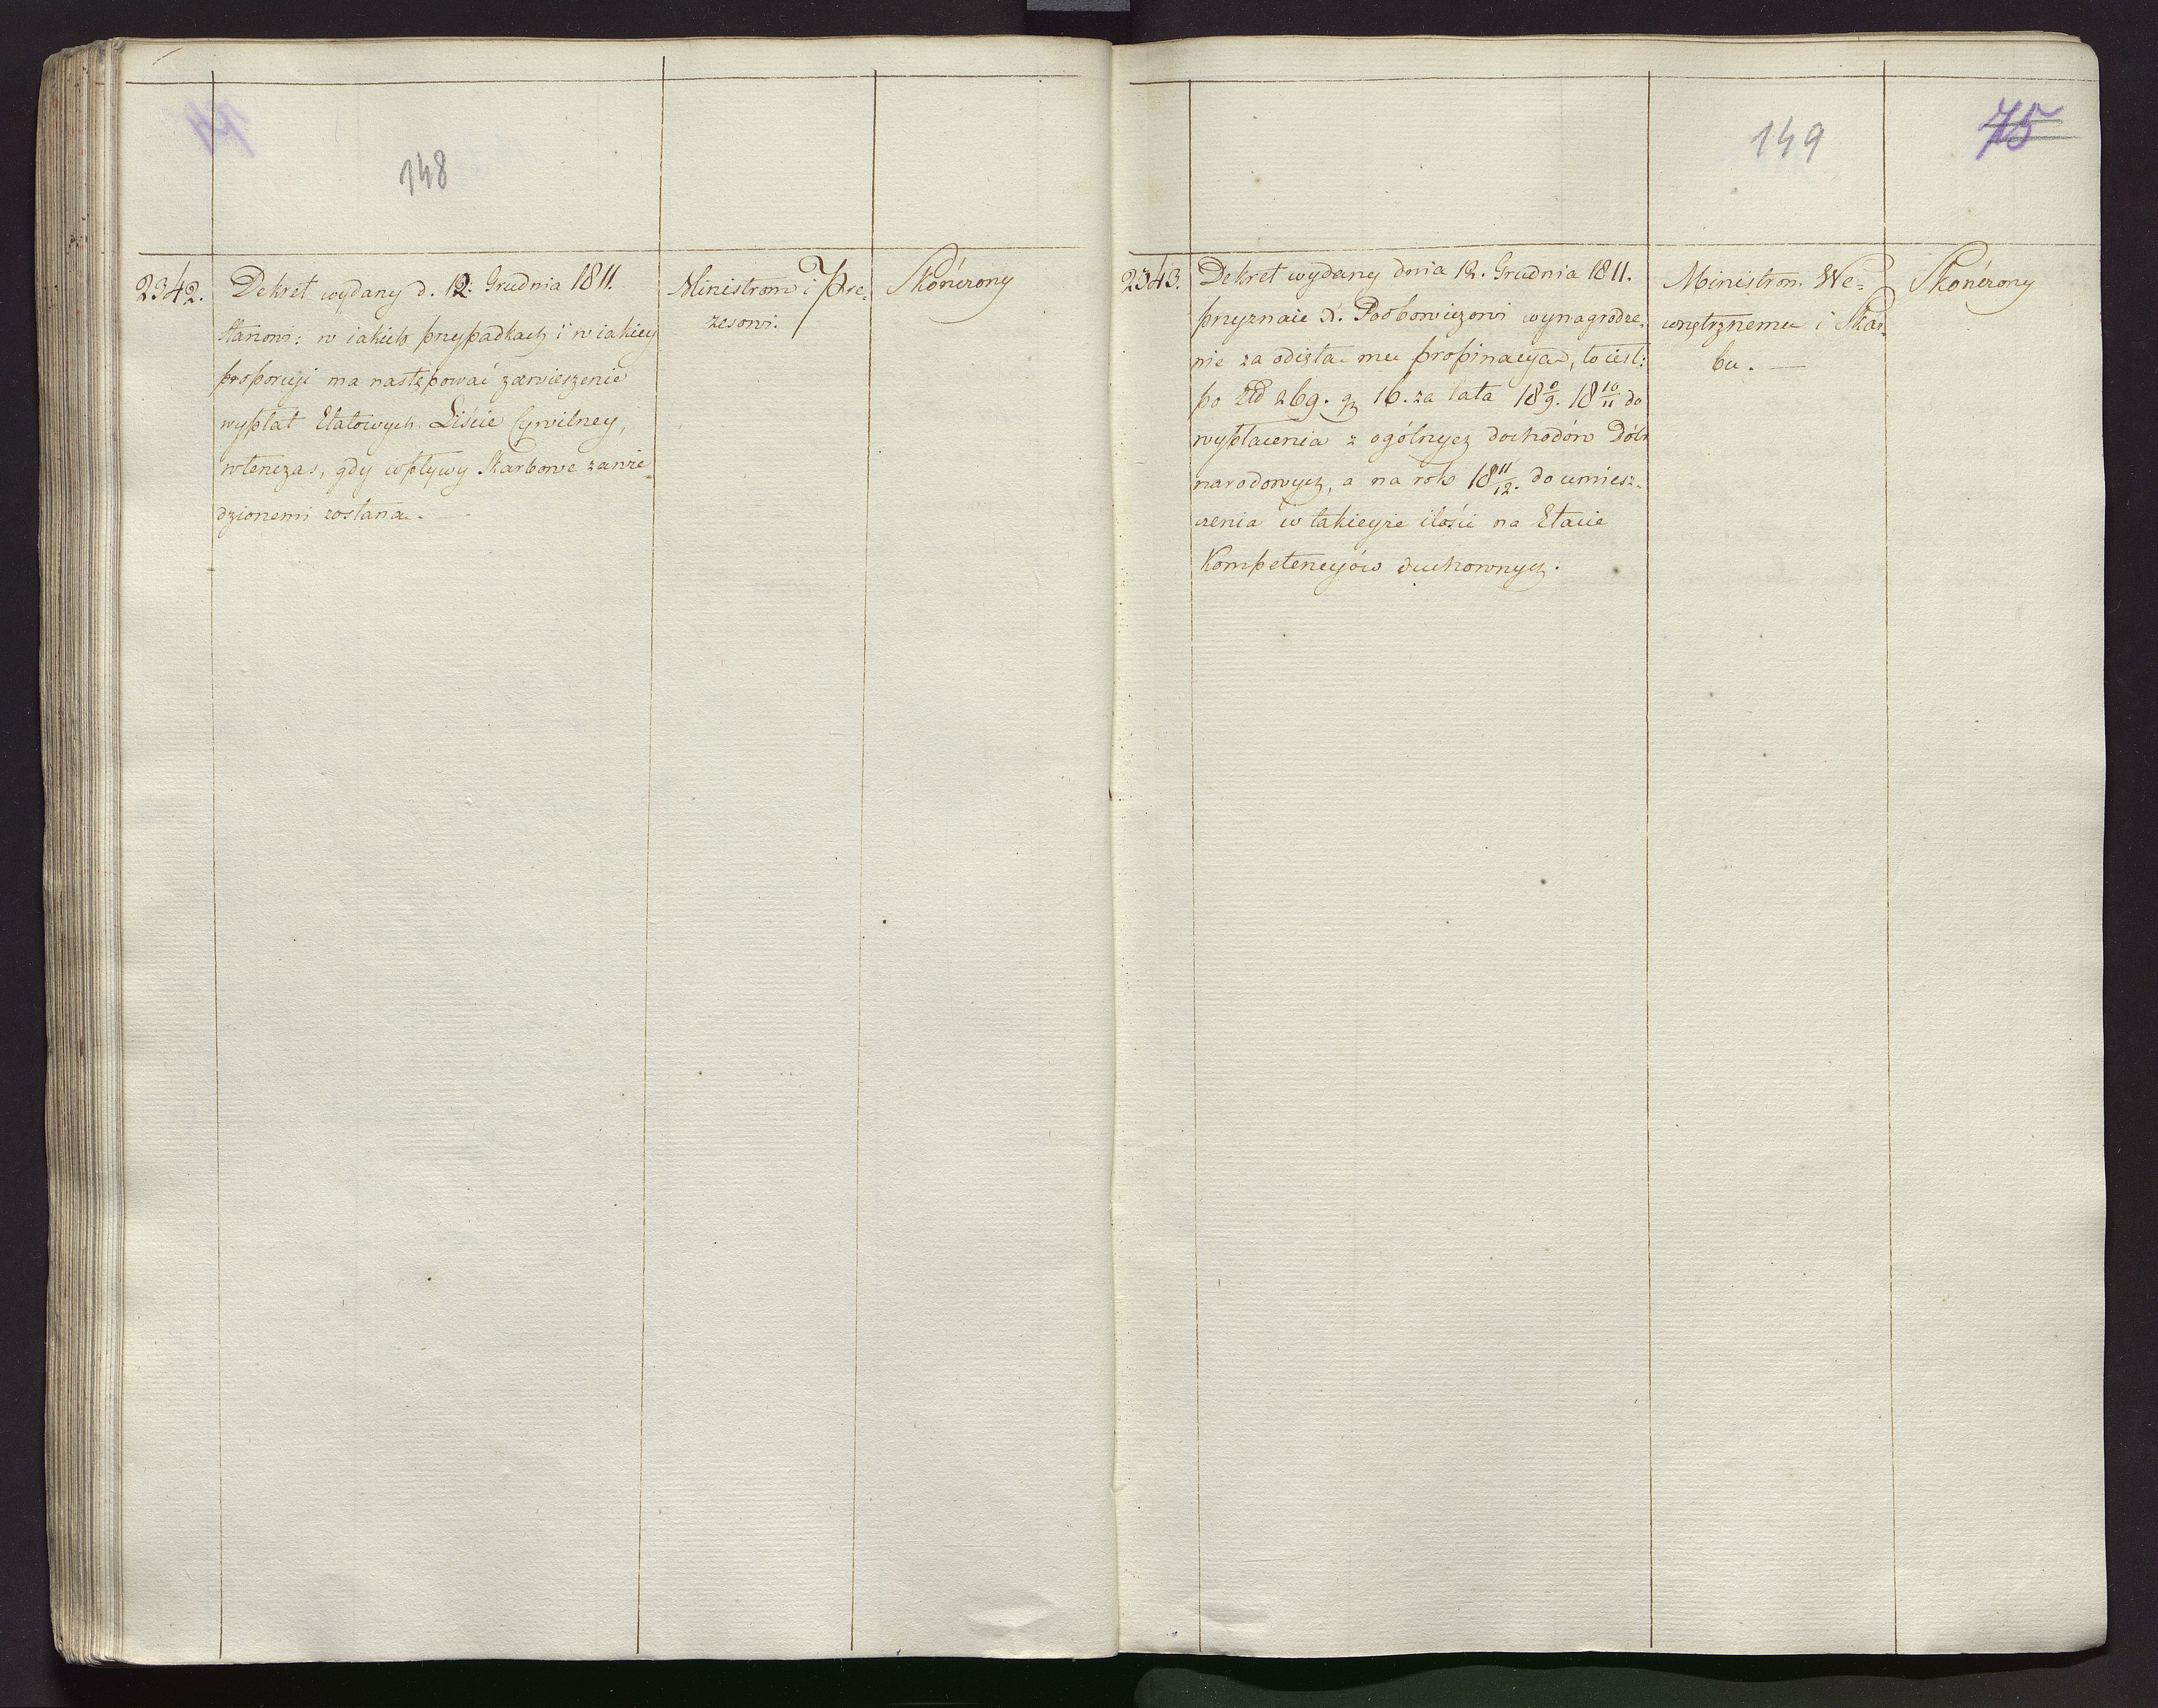 148
2342.
Dekret wydany d. 12. Grudnia 1811.
stanowi: w iakich przypadkach i w iakiey
proporcyi ma następować zawieszenie
wypłat Etatowych Liście Cywilney,
wtenczas, gdy wpływy Skarbowe zawie=
dzionemi zostaną. —
Ministrom i Pre=
zesowi.
Skończony
149
75
2343.
Dekret wydany dnia 12. Grudnia 1811.
przyznaie X. Podbowiczowi wynagrodze=
nie za odiętą mu propinacyą, to iest:
po 269. 16. za lata 18 9/. 18 10/11 do
wypłacenia z ogólnych dochodów Dóbr
narodowych, a na rok 18 11/12. do umiesz=
czenia w takieyże ilości na Etacie
Kompetencyów duchownych.
Ministrom We=
wnętrznemu i Skar=
bu. —
Skończony